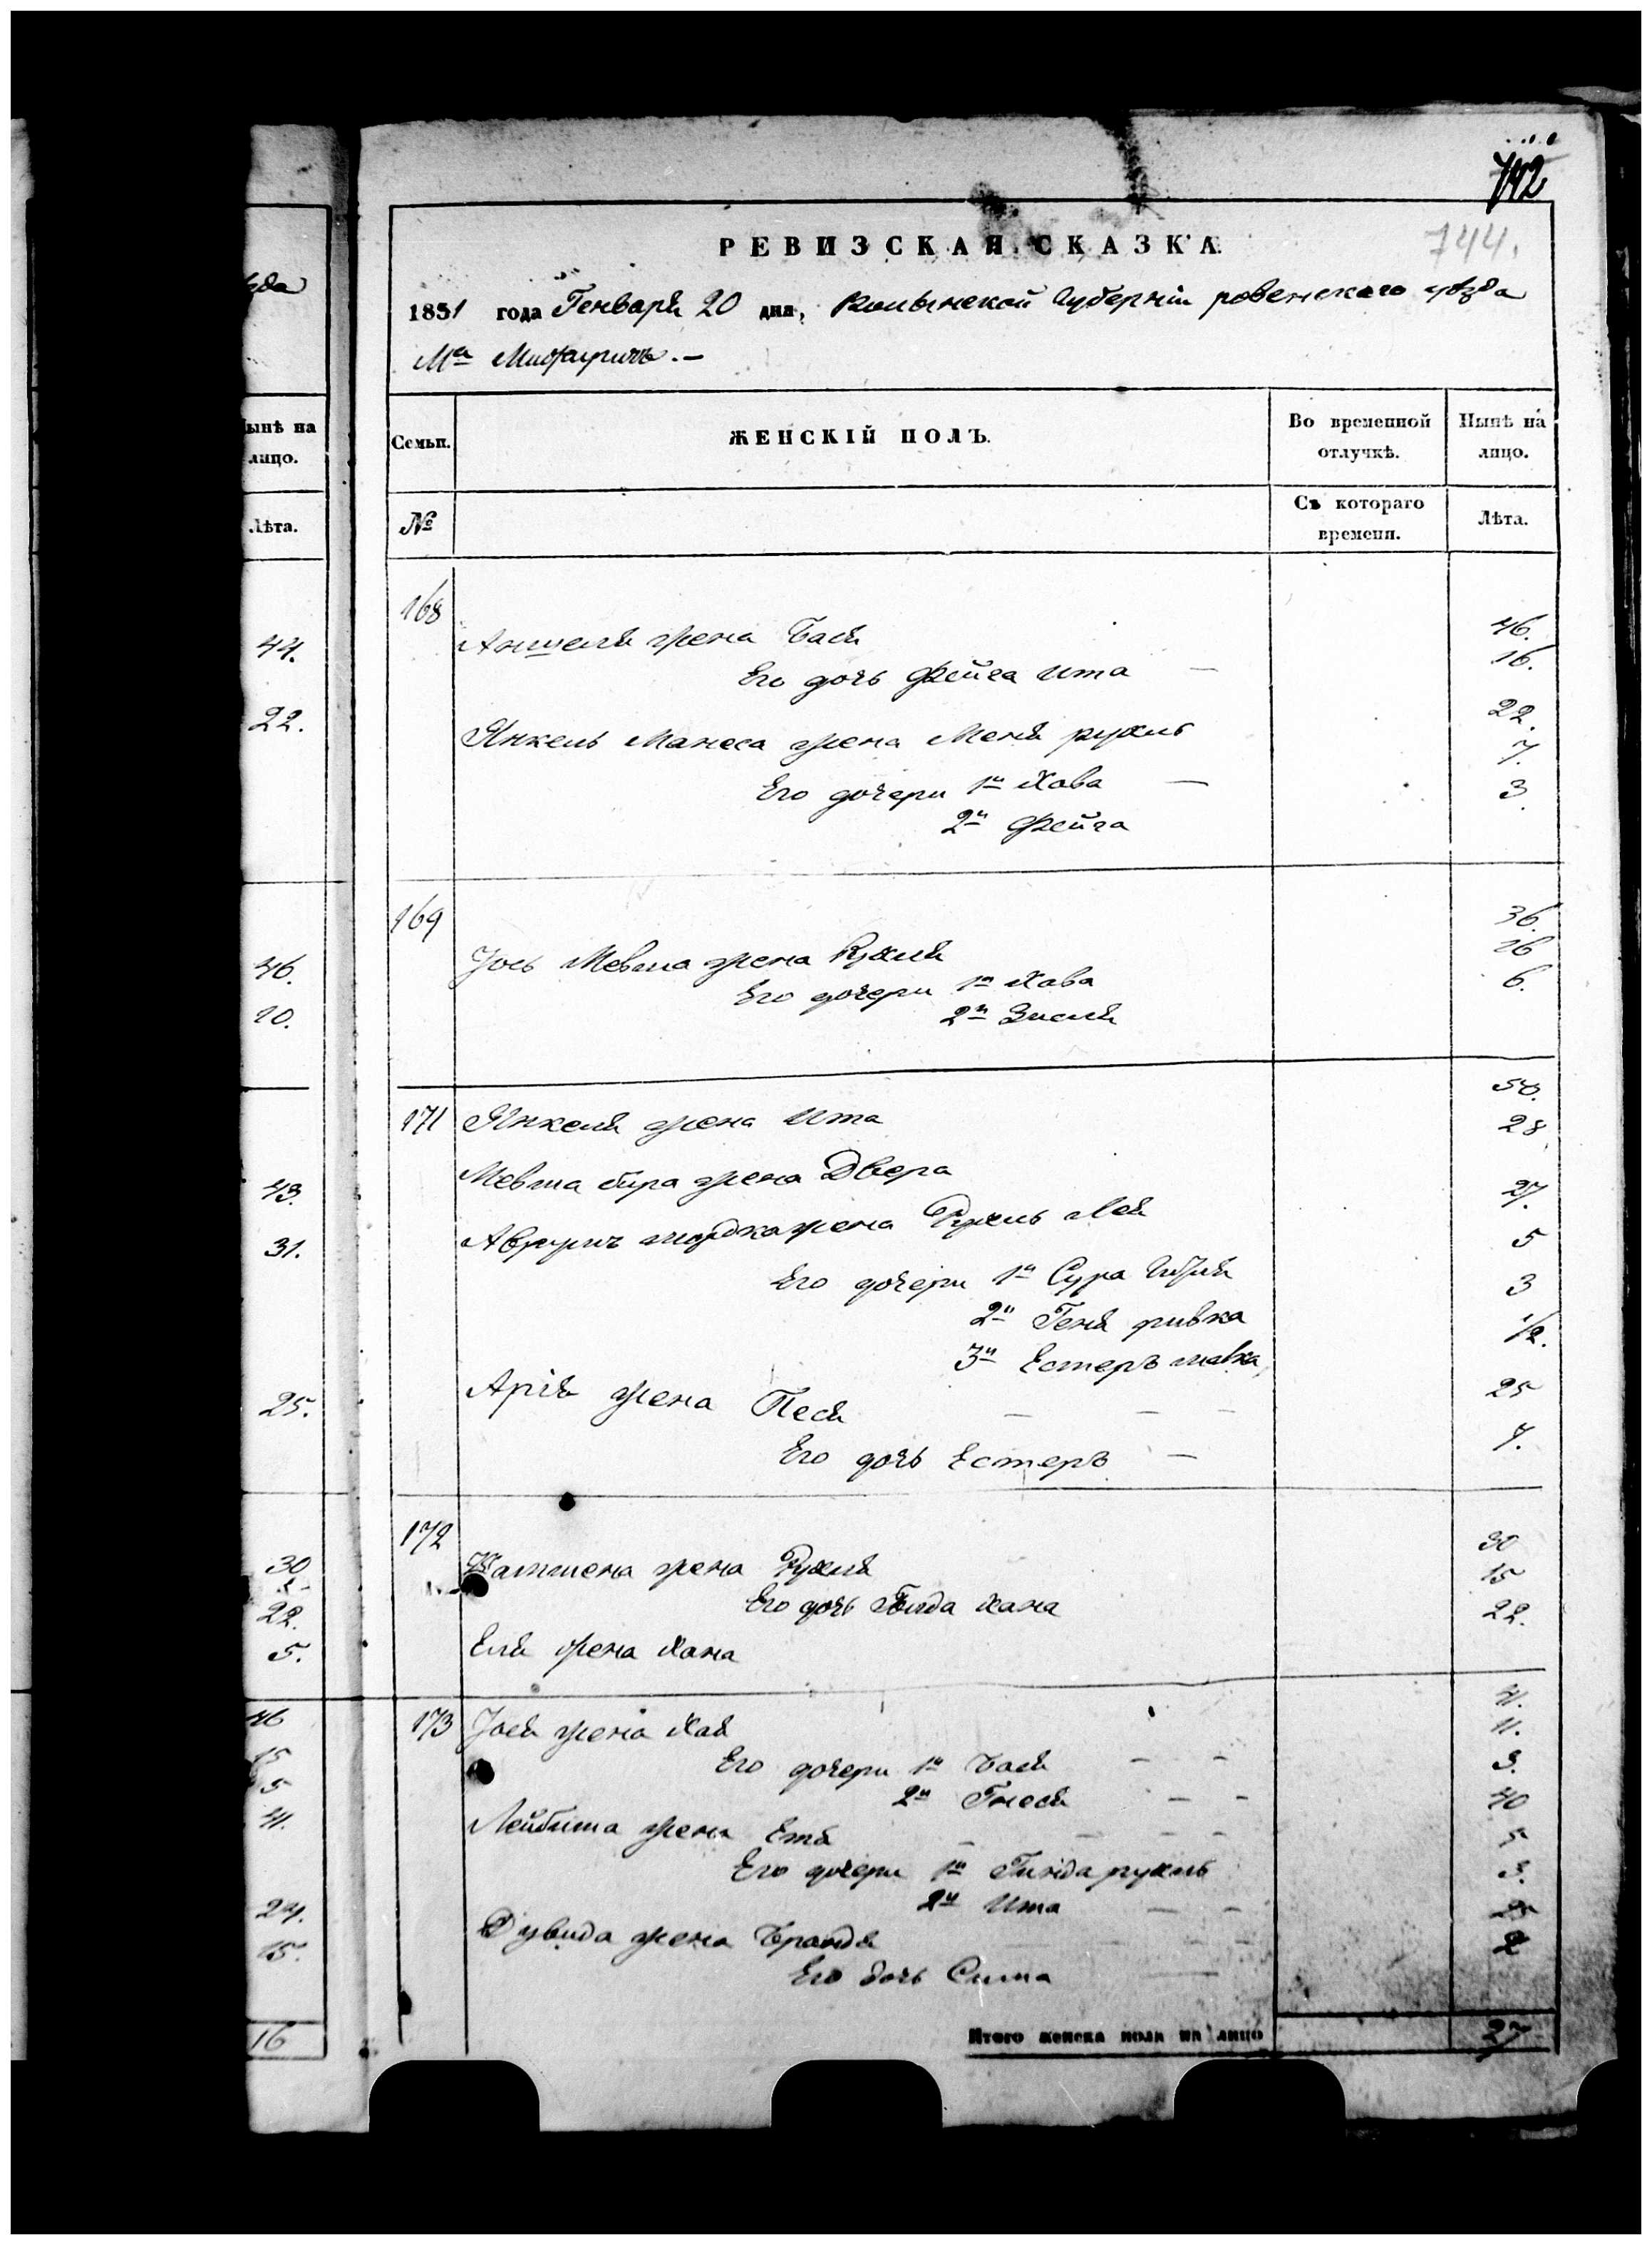 742
744.
РЕВИЗСКАЯ СКАЗКА
1851 года Генваря 20 дня, Волынской Губерніи ровенского уѣзда
Мᵃ Межиричъ.-
Семьи.
ЖЕНСКІЙ ПОЛЪ.
Во временной отлучкѣ.
Нынѣ на лицо.
№
Съ котораго времени.
Лѣта.
168
Аншеля жена Бася 46.
Его дочь Фейга Ита — 16.
Янкель Манеса жена Меня рухль 22.
Его дочери 1ᵃ Хава — 7.
2ᵃ Фейга 3.
169
Іось Мевша жена Рухля 36.
Его дочери 1ᵃ Хава 16
2ᵃ Зисля 6.
171 Янкеля жена Ита 50.
Мевша жена Двера 28
Аврумъ мордка жена Рухль Лея 27.
Его дочери 1ᵃ Сура 5
2ᵃ Геня ривка 3
3ᵃ Естеръ малка 1/2.
Арія жена Песя — — — 25
Его дочь Естеръ — 7.
172
жена Рухля 30
Его дочь Голда хана 15
Еля жена Хана 22.
173 Іося жена Хая 41.
Его дочери 1ᵃ Бася — — 11.
2ᵃ Гнеся — — 3.
Лейбиша жена Етя — — — — 40
Его дочери 1ᵃ Гинда рухль 5
2ᵃ Ита — — 3.
Дувида жена Брандя — — — — 25
Его дочь Сима — 2
Итого женска пола на лицо 27
ѣзда
Нынѣ на лицо.
Лѣта.
44.
22.
46.
10.
43.
31.
25.
30
22.
5.
46
15
5
41.
24.
15.
16